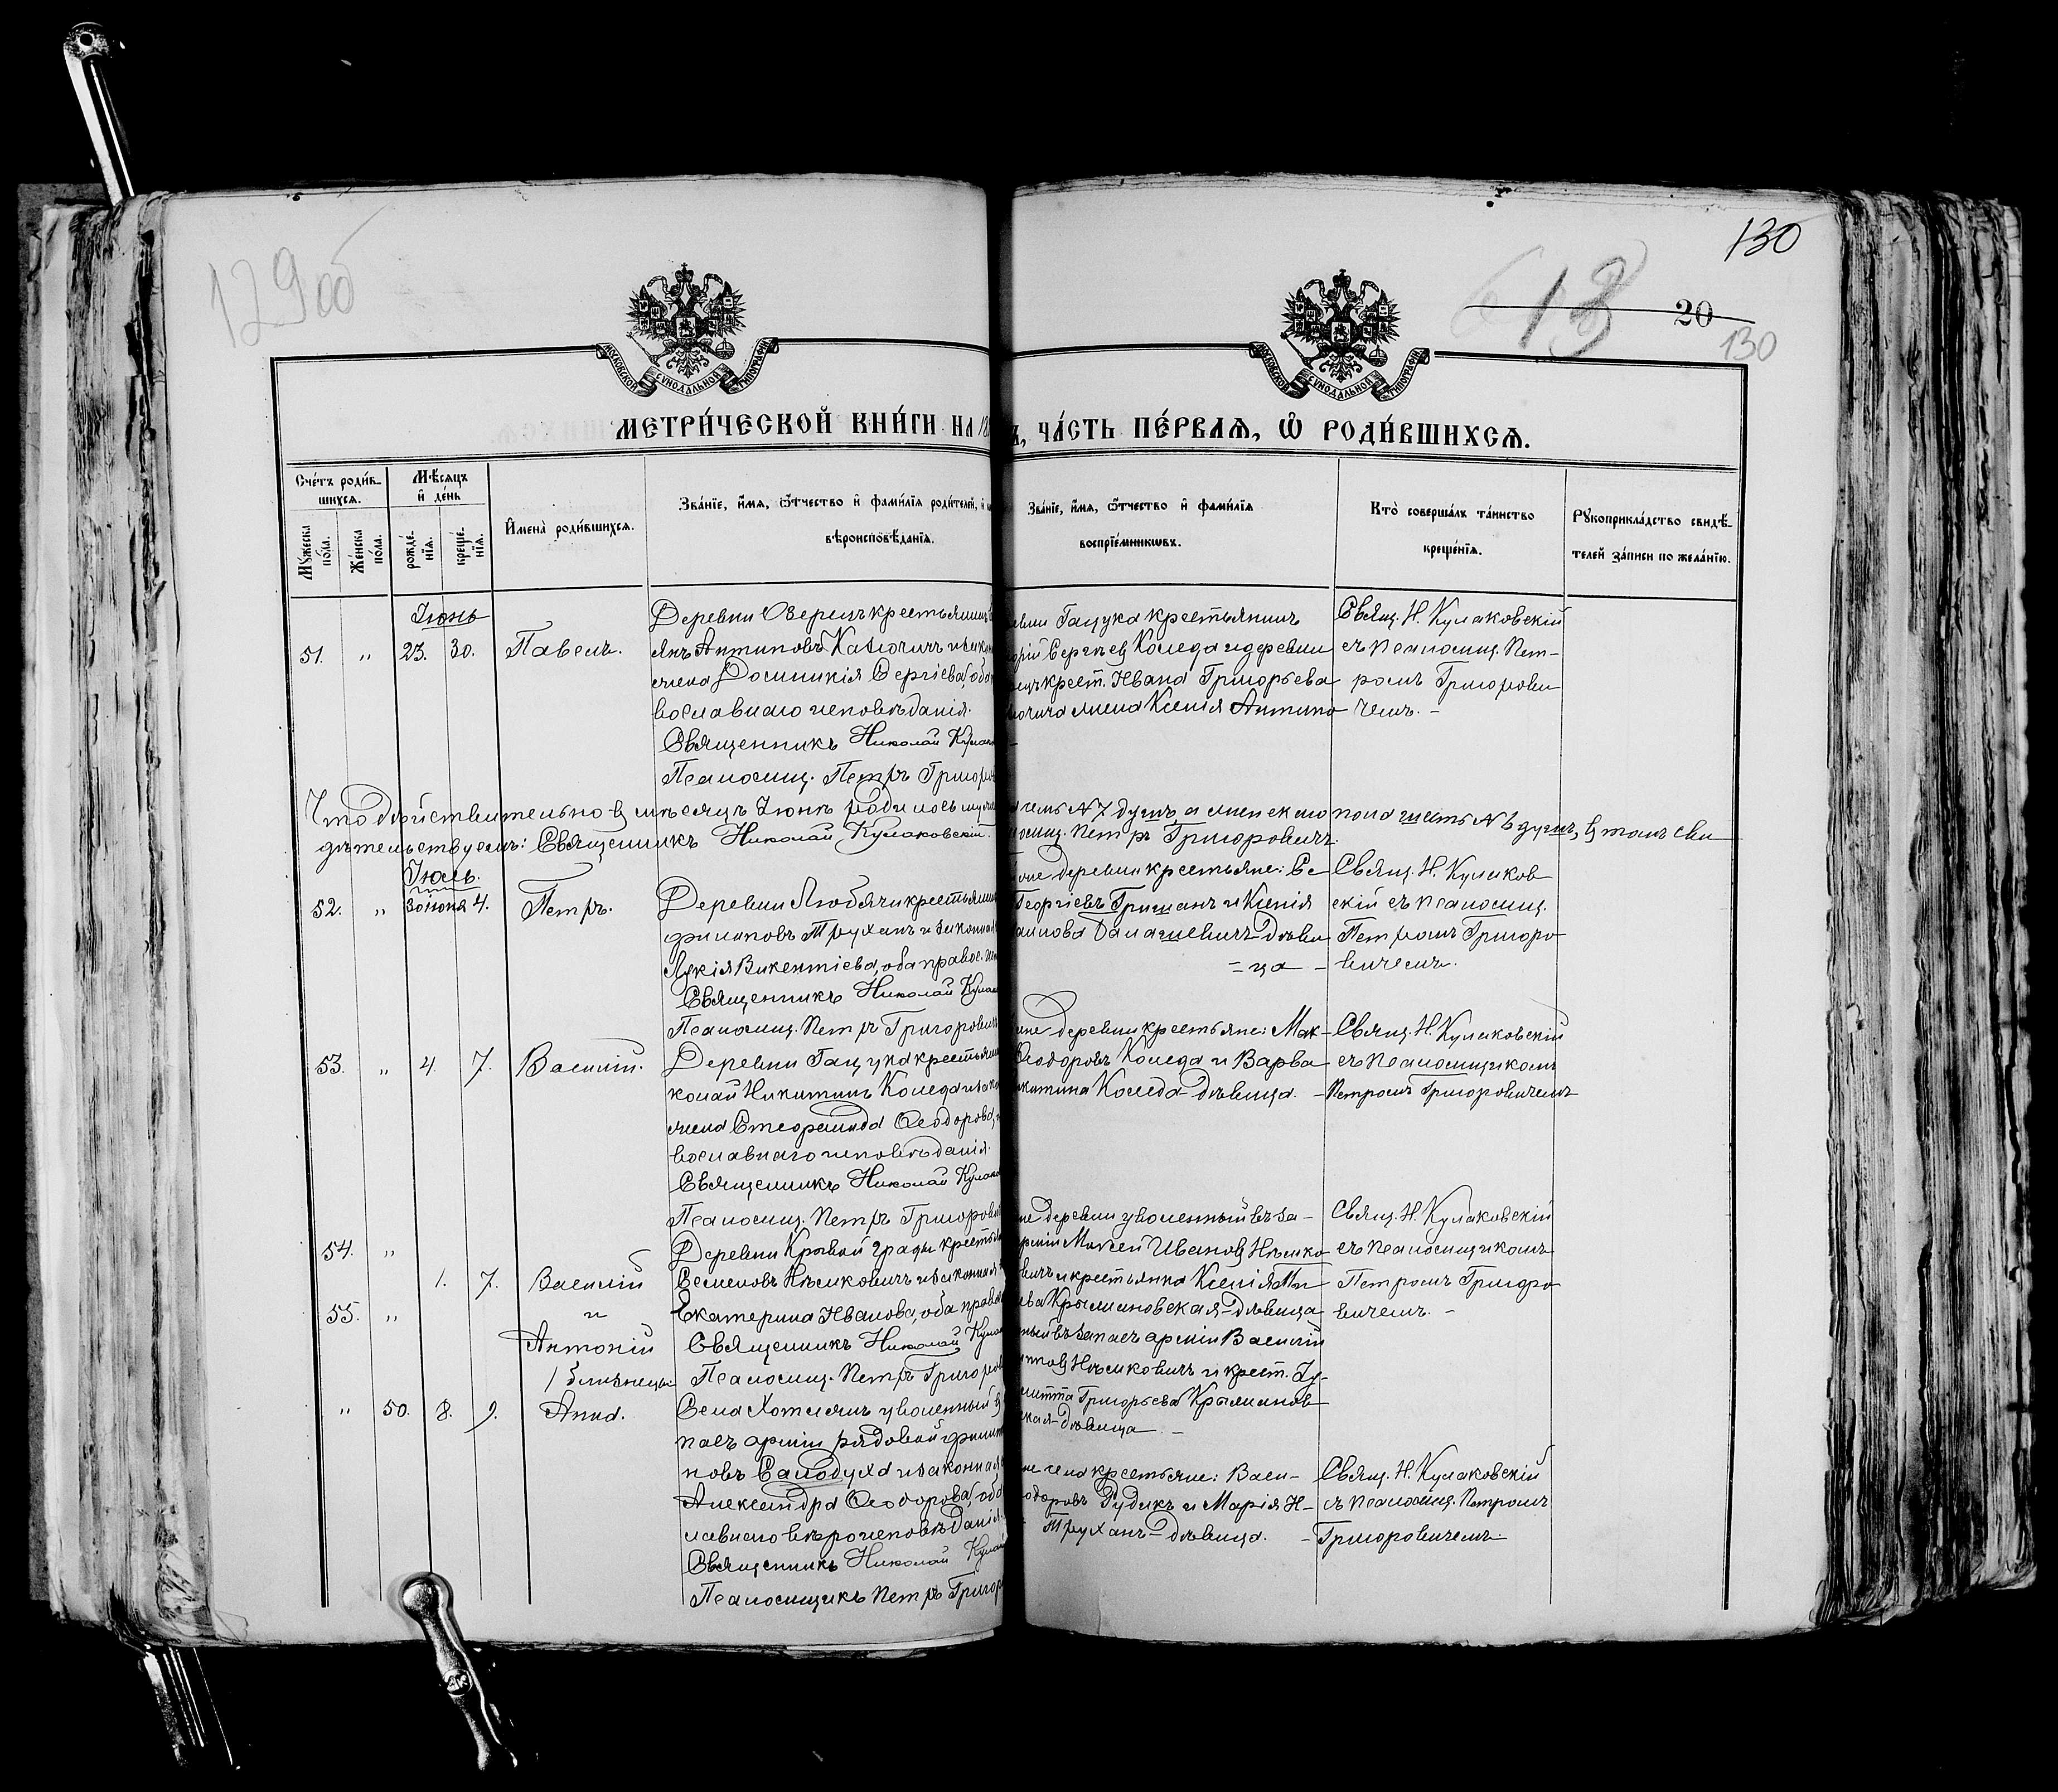 129об
130
13
20
130
МОСКОВСКОЙ СУНОДАЛЬНОЙ ТИПОГРАФІИ
МОСКОВСКОЙ СУНОДАЛЬНОЙ ТИПОГРАФІИ
МЕТРИ́ЧЕСКОЙ КНИ́ГИ НА 18
, ЧА́СТЬ ПЕ́РВАѦ, Ѿ РОДИ́ВШИХСѦ.
Сче́тъ роди́в-
шихся.
Мꙋжеска по́ла.
Же́нска по́ла.
Мѣ́сяцъ и҆ де́нь
рожде́нїя.
креще́нїя.
И҆мена̀ роди́вшихся.
Зва́нїе, и҆́мя, ѻ҆́тчество и҆ фами́лїя роди́телей, и҆
вѣроисповѣ́данїя.
Зва́нїе, и҆́мя, ѻ҆́тчество и҆ фами́лїя
воспрїе́мникѡвъ.
Кто̀ соверша́лъ та́инство
креще́нїя.
Рꙋкоприкла́дство свидѣ́-
телей за́писи по жела́нїю.
Іюнь
51. " 23. 30. Павелъ.
Деревни Озерецъ крестьянинъ
Антиповъ
жена Домникія Сергіева, обо
вославнаго исповѣданія.
Священникъ Николай Кулак
Псаломщ. Петръ Григоро
евни Гацука крестьянинъ
орій Сергѣевъ Коледа и деревни
ецъ крест. Ивана Григорьева
жена Ксенія Антипо
Свящ. Н. Кулаковскій
съ псаломщ. Пет-
ромъ Григорови
чемъ. -
Что дѣйствительно въ мѣсяцѣ Іюнѣ родилось муж
№ 7 душъ, а женскаго пола шесть № 6 душъ, въ томъ сви
дѣтельствуемъ: Священникъ Николай Кулаковскій.
омщ. Петръ Григоровичъ.
Іюль.
52. " 30 іюня 4. Петръ.
Деревни Любячи крестьянин
филиповъ Труханъ и законная
Лукія Викентіева, оба правос.
Священникъ Николай Кулак
Псаломщ. Петръ Григорович
деревни крестьяне: Се
Георгіевъ Гришанъ и Ксенія
аилова Балашевичъ дѣви
= ца -
Свящ. Н. Кулаков
скій съ псаломщ.
Петромъ Григоро
вичемъ.
53. " 4. 7. Василій.
Деревни Гацука крестьянин
колай Никитинъ Коледа и зако
жена Стеоанида Ѳеодорова,
вославнаго исповѣданія.
Священникъ Николай Кулако
Псаломщ. Петръ Григорови
деревни крестьяне: Мак-
Ѳеодоровъ Коледа и Варва
икитина Коледа дѣвица. -
Свящ. Н. Кулаковскій
съ псаломщикомъ
Петромъ Григоровичемъ
54. "
1. 7. Василій
55. "
и
Антоній
/ близнецы
Деревни Кривой грады крестьян
Семеновъ Нѣмковичъ и законная
Екатерина Иванова, оба право
Священникъ Николай Кулак
Псаломщ. Петръ Григоров
деревни уволенный въ за-
арміи Моисей Ивановъ Нѣмко
вичъ и крестьянка Ксенія Ми
ева Крымановская дѣвица
ный въ запасъ арміи Василій
Нѣмковичъ и крест. Іу-
литта Григорьева Крыманов
ская дѣвица. -
Свящ. Н. Кулаковскій
съ псаломщикомъ
Петромъ Григоро
вичемъ. -
" 50. 8. 9. Анна.
Села Хотлянъ уволенный въ
пасъ арміи рядовой филип
повъ и законная
Александра Ѳеодорова, оба
лавнаго вѣроисповѣданія.
Священникъ Николай Кулак
Псаломщикъ Петръ Григор
села крестьяне: Васи-
одоровъ Рудикъ и Марія Н-
Труханъ дѣвица. -
Свящ. Н. Кулаковскій
съ псаломщ. Петромъ
Григоровичемъ.